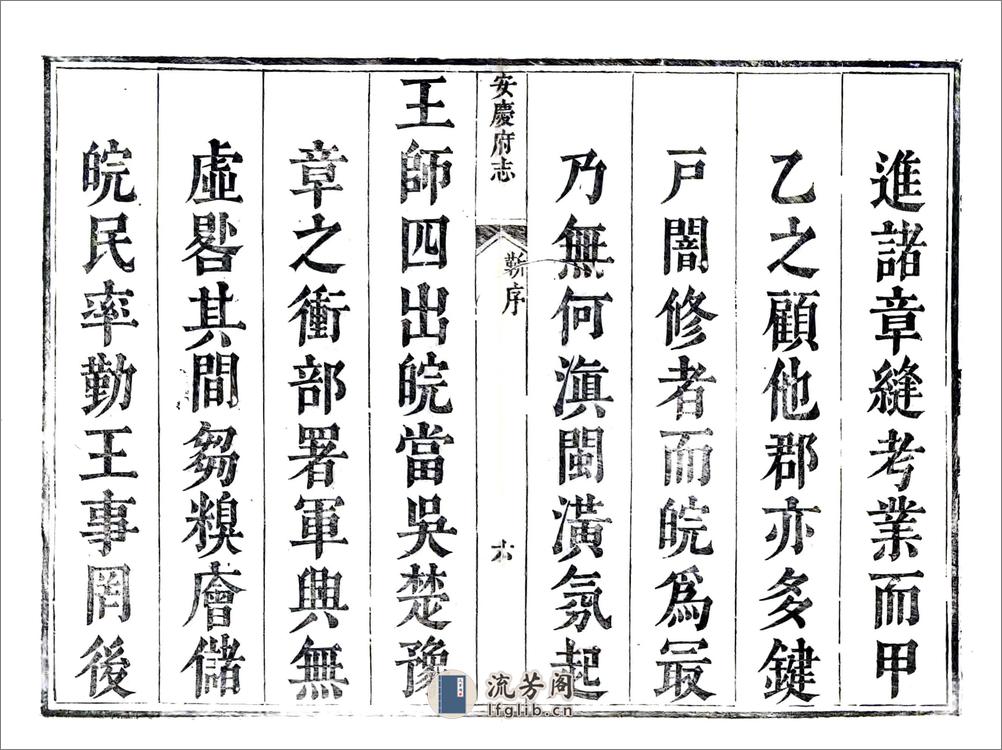 進諸章縫考業而甲
乙之顧他郡亦多鍵
戸闇修者而皖爲㝡
乃無何滇閩潢氛起
安慶府志
靳序
六
王師四出皖當吳楚豫
章之衝部署軍興無
虛晷其間芻糗廥儲
皖民率勤王事罔後
流芳阁
lfglib.cn